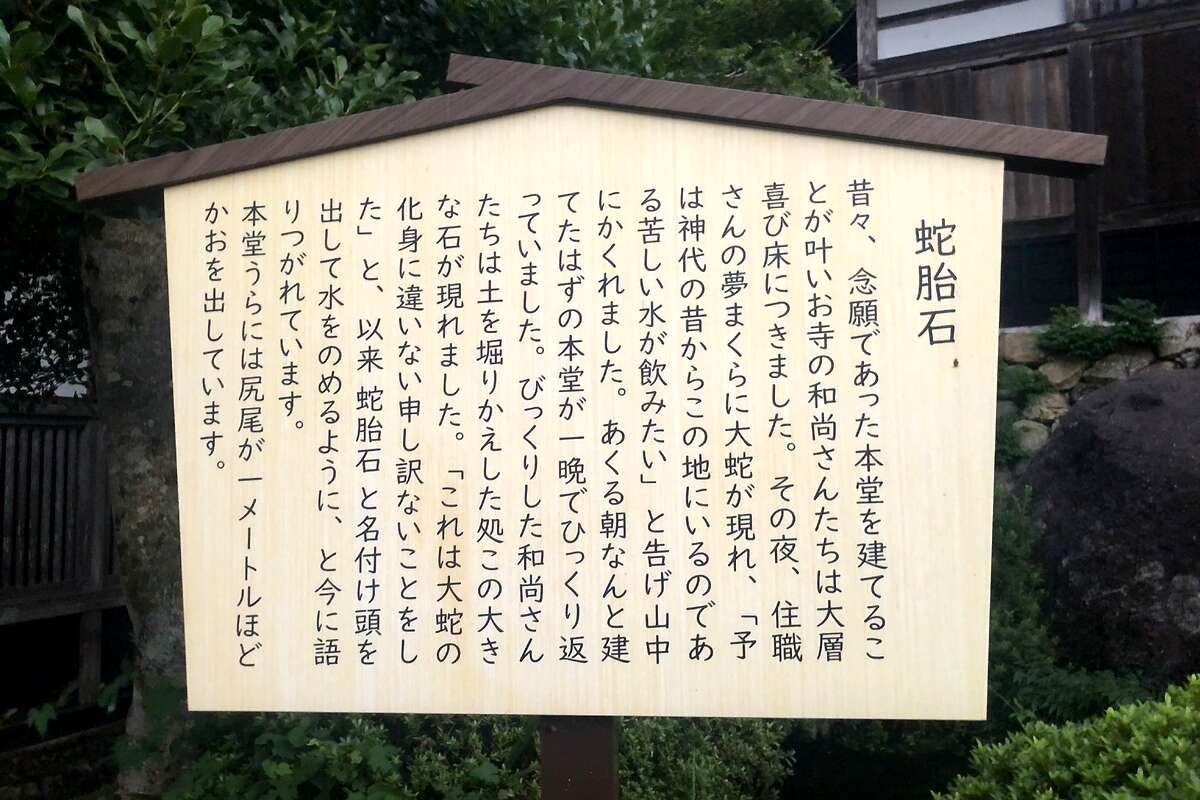 蛇胎石
昔々、念願であった本堂を建てるこ
とが叶いお寺の和尚さんたちは大層
喜び床につきました。その夜、住職
さんの夢まくらに大蛇が現れ、「予
は神代の昔からこの地にいるのであ
る苦しい水が飲みたい」と告げ山中
にかくれました。あくる朝なんと建
てたはずの本堂が一晩でひっくり返
っていました。びっくりした和尚さん
たちは土を堀りかえした処この大き
な石が現れました。「これは大蛇の
化身に違いない申し訳ないことをし
た」と、以来 蛇胎石 と名付け頭を
出して水をのめるように、と今に語
りつがれています。
本堂うらには尻尾が一メートルほど
かおを出しています。